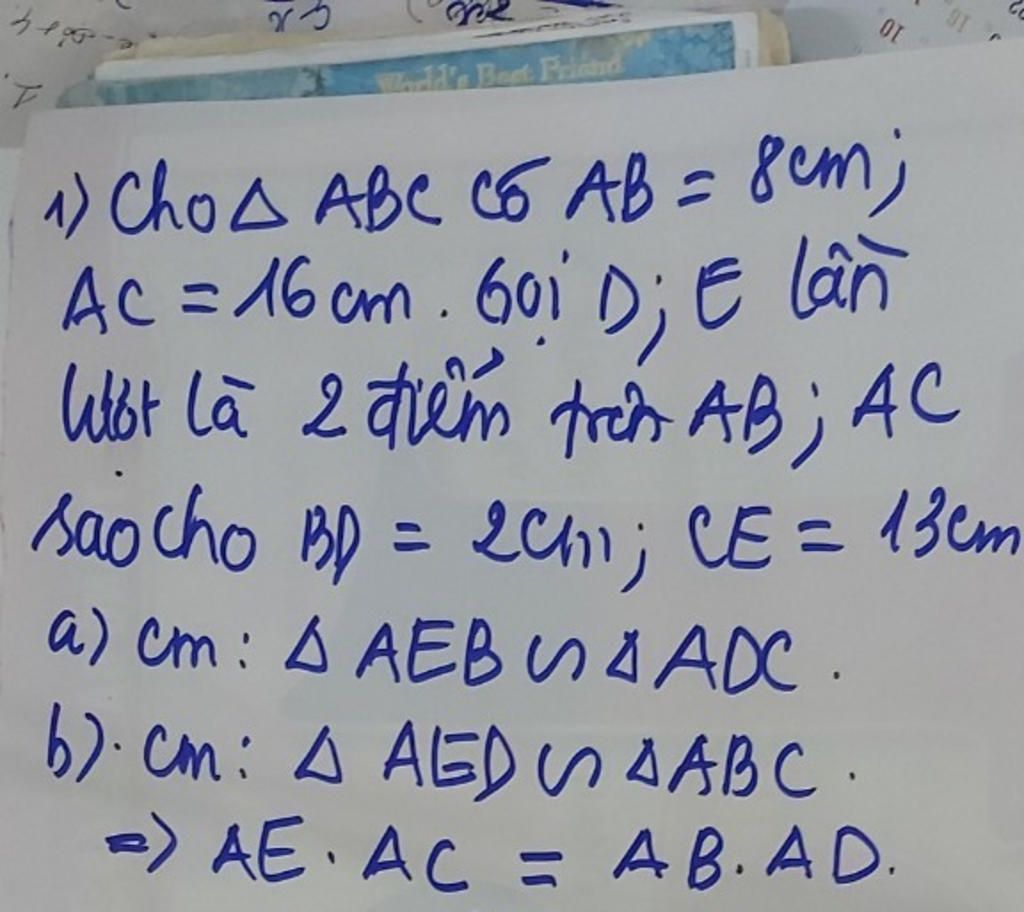 World's Best Friend
10
1) Cho Δ ABC có AB = 8cm;
AC = 16 cm. Gọi D; E lần
lượt là 2 điểm trên AB; AC
sao cho BD = 2cm; CE = 13cm
a) cm: Δ AEB ∽ Δ ADC.
b). cm: Δ AED ∽ Δ ABC.
=> AE. AC = AB. AD.